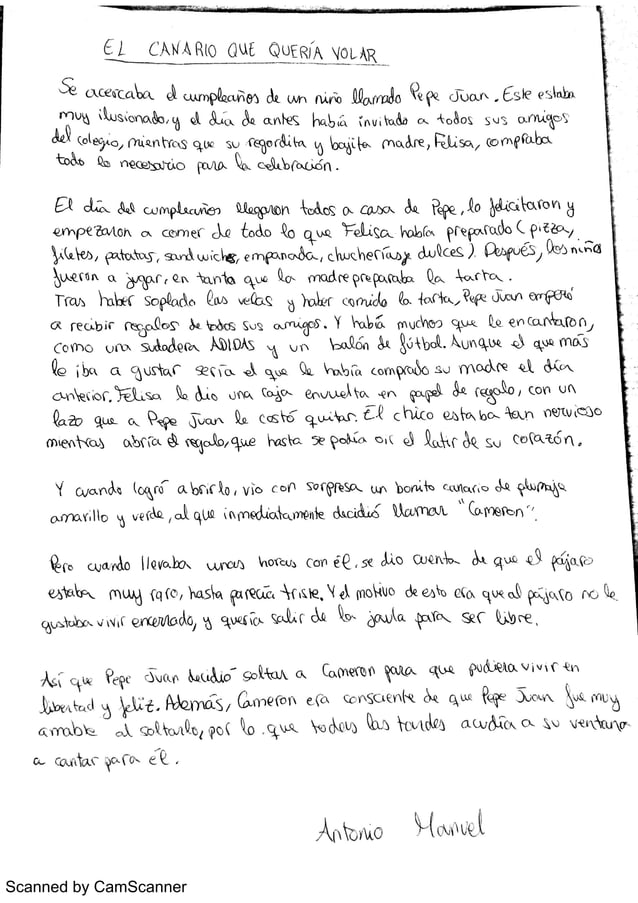 EL CANARIO QUE QUERÍA VOLAR
Se acercaba el cumpleaños de un niño llamado Pepe Juan. Este estaba
muy ilusionado, y el día de antes había invitado a todos sus amigos
del colegio, mientras que su regordita y bajita madre, Felisa, compraba
todo lo necesario para la celebración.
El día del cumpleaños llegaron todos a casa de Pepe, lo felicitaron y
empezaron a comer de todo lo que Felisa había preparado (pizza,
filetes, patatas, sandwichs, empanada, chucherías y dulces). Después, los niños
fueron a jugar, en tanto que la madre preparaba la tarta.
Tras haber soplado las velas y haber comido la tarta, Pepe Juan empezó
a recibir regalos de todos sus amigos. Y había muchos que le encantaron,
como una sudadera ADIDAS y un balón de fútbol. Aunque el que más
le iba a gustar sería el que le había comprado su madre el día
anterior. Felisa le dio una caja envuelta en papel de regalo, con un
lazo que a Pepe Juan le costó quitar. El chico estaba tan nervioso
mientras abría el regalo, que hasta se podía oir el latir de su corazón.
Y cuando logró abrirlo, vio con sorpresa un bonito canario de plumaje
amarillo y verde, al que inmediatamente decidió llamar "Cameron".
Pero cuando llevaba unas horas con él, se dio cuenta de que el pájaro
estaba muy raro, hasta parecía triste. Y el motivo de esto era que al pájaro no le
gustaba vivir encerrado, y quería salir de la jaula para ser libre.
Así que Pepe Juan decidió soltar a Cameron para que pudiera vivir en
libertad y feliz. Además, Cameron era consciente de que Pepe Juan fue muy
amable al soltarlo, por lo que todas las tardes acudía a su ventana
a cantar para él.
Antonio Manuel
Scanned by CamScanner